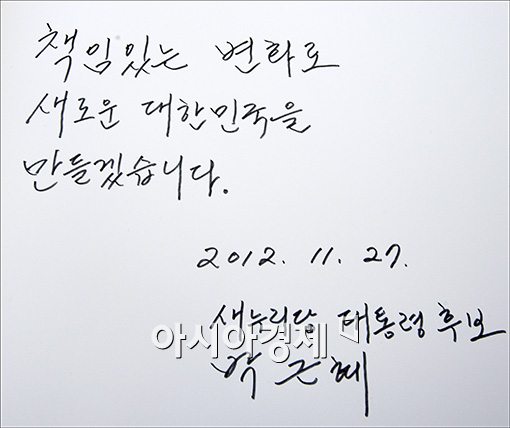 책임있는 변화로
새로운 대한민국을
만들겠습니다.
2012. 11. 27.
새누리당 대통령 후보
아시아경제
박근혜